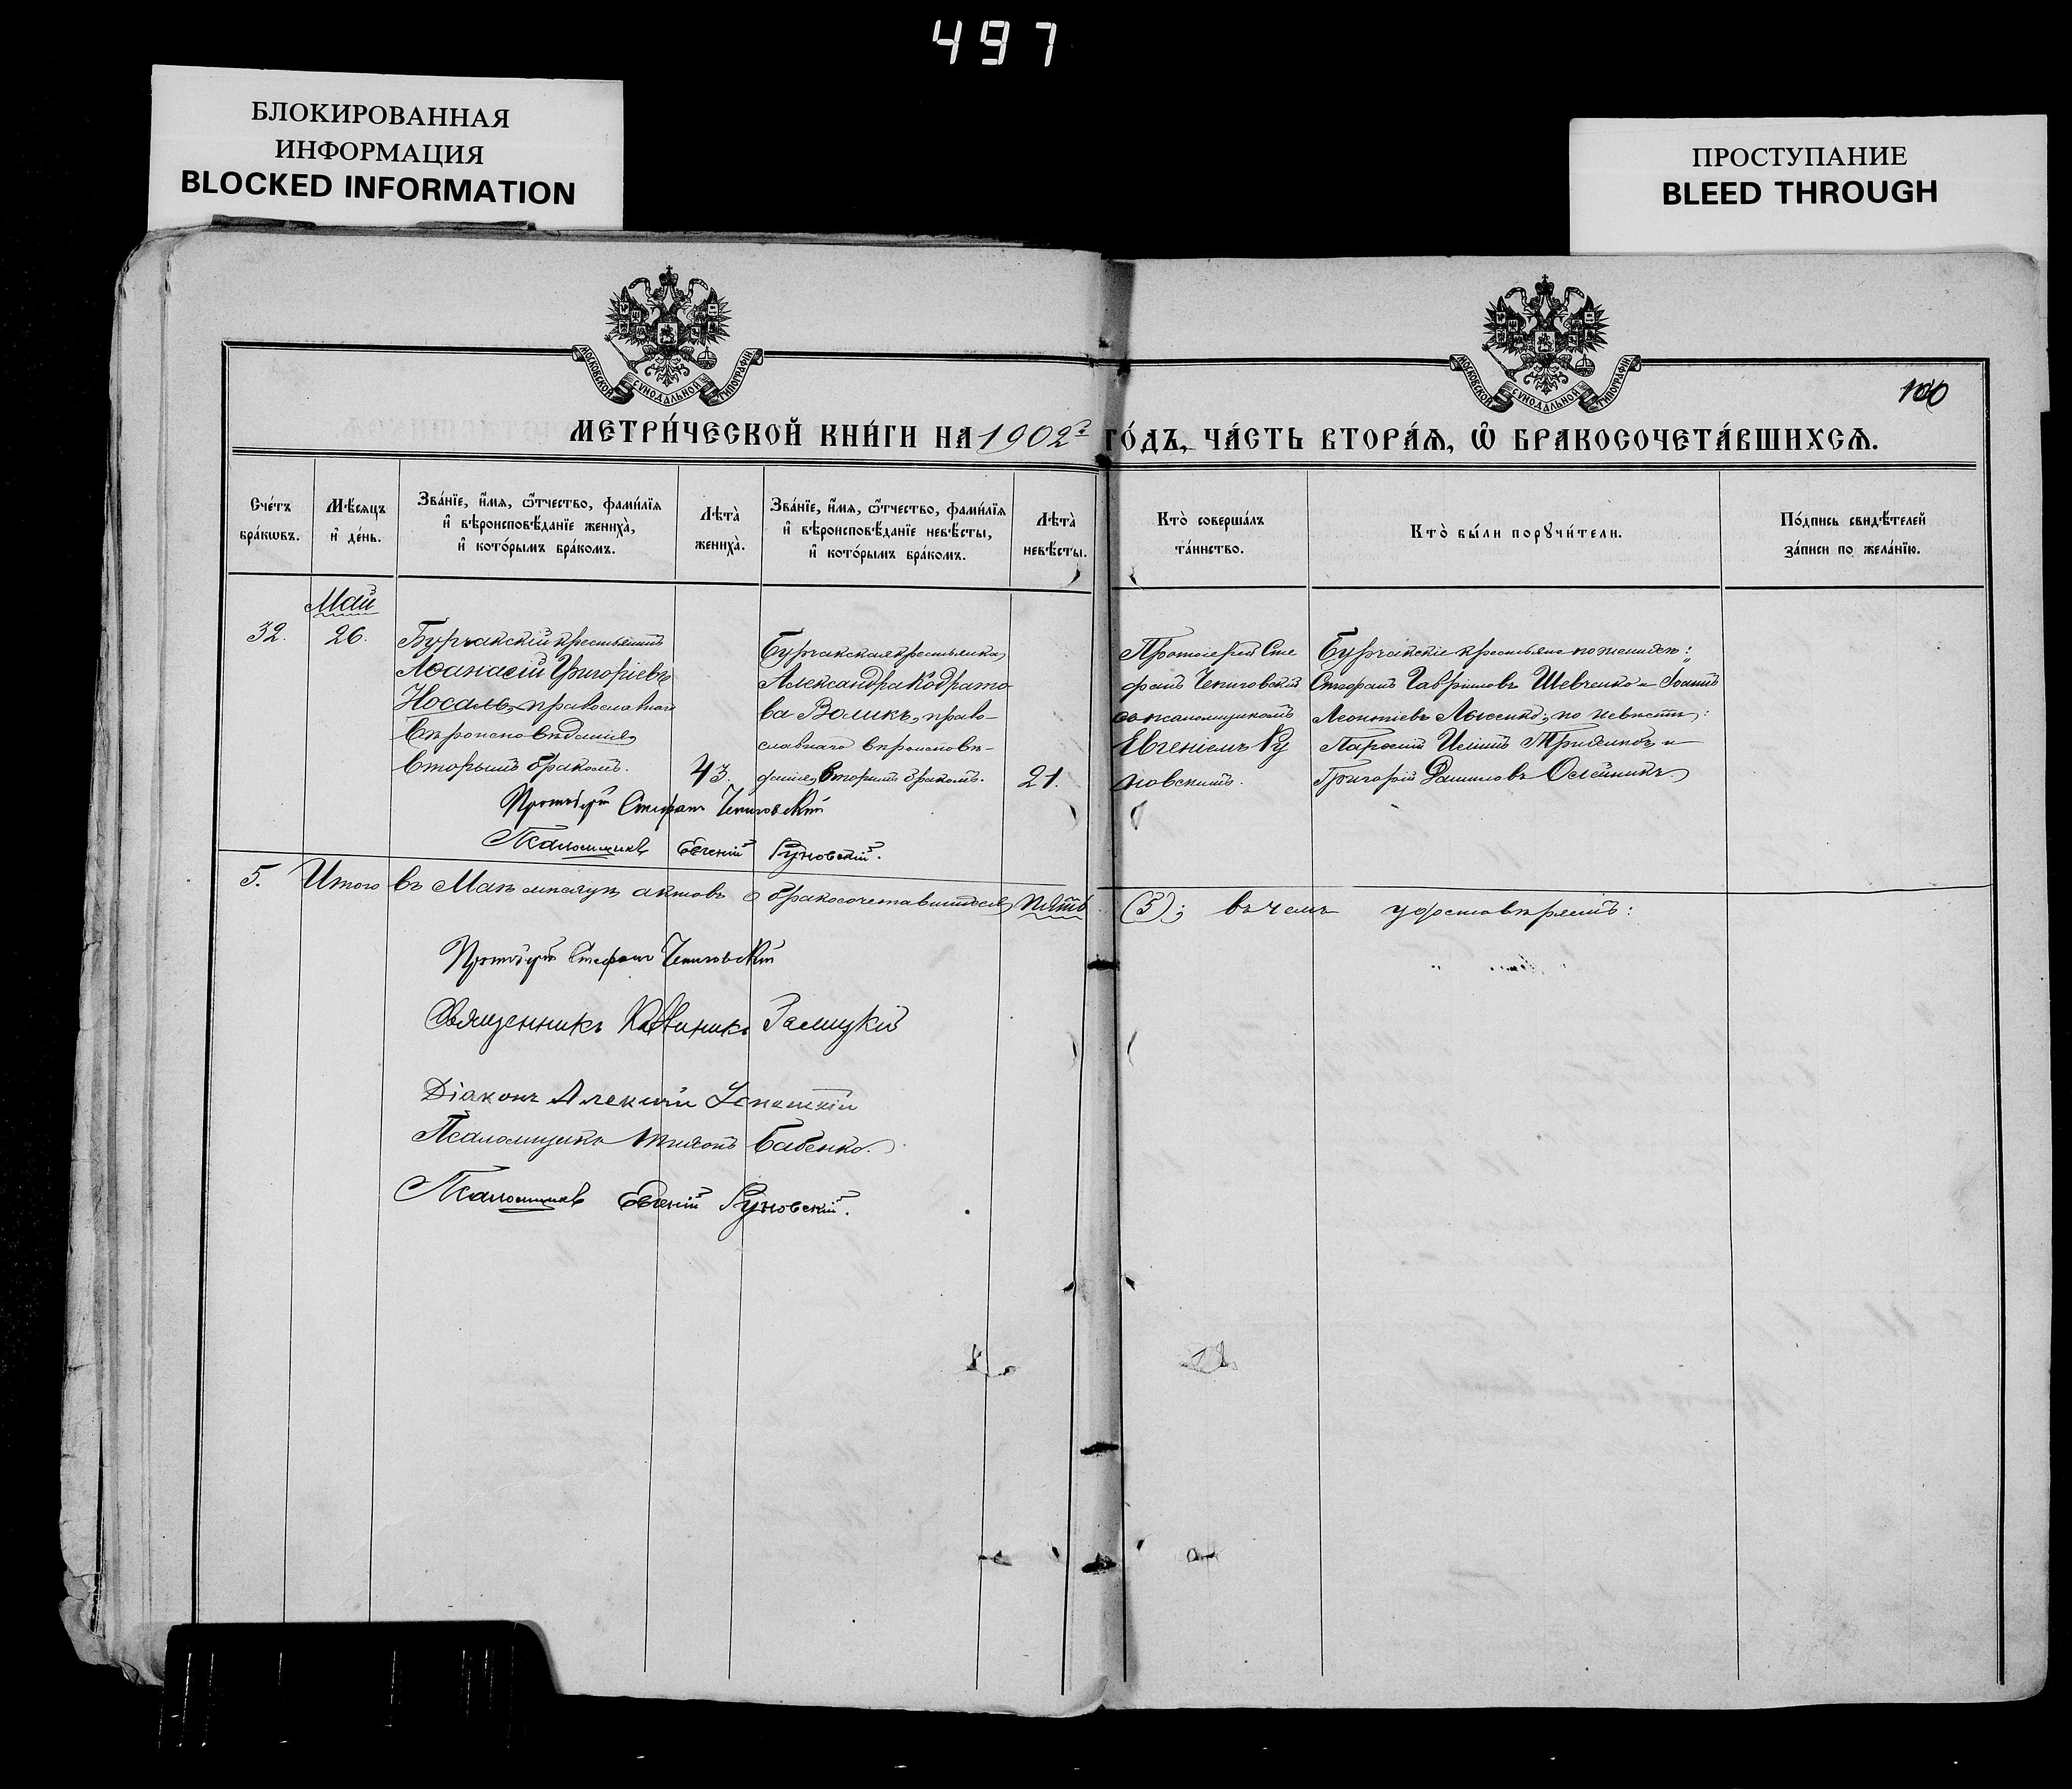 497
БЛОКИРОВАННАЯ
ИНФОРМАЦИЯ
BLOCKED INFORMATION
ПРОСТУПАНИЕ
BLEED THROUGH
МОСКОВСКОЙ СѴНОДАЛЬНОЙ ТИПОГРАФІИ
МОСКОВСКОЙ СѴНОДАЛЬНОЙ ТИПОГРАФІИ
100
МЕТРИ́ЧЕСКОЙ КНИ́ГИ НА 1902 ГО́ДЪ, ЧА́СТЬ ВТОРА́Я, Ѡ҆ БРАКОСОЧЕТА́ВШИХСѦ.
Сче́тъ
бра́кѡвъ.
Мѣ́сяцъ
и҆ де́нь.
Зва́нїе, и҆́мя, ѻ҆́тчество, фами́лїя
и҆ вѣроисповѣ́данїе жениха̀,
и҆ кото́рымъ бра́комъ.
Лѣта̀
жениха̀.
Зва́нїе, и҆́мя, ѻ҆́тчество, фами́лїя
и҆ вѣроисповѣ́данїе невѣ́сты,
и҆ кото́рымъ бра́комъ.
Лѣта̀
невѣ́сты.
Кто̀ соверша́лъ
та́инство.
Кто̀ бы́ли порꙋчи́тели.
По́дпись свидѣ́телей
за́писи по жела́нїю.
Май
32.
26.
Бурчакскій крестьянинъ
Аѳанасій Григоріевъ
Носаль, православнаго
вѣроисповѣданія,
вторымъ бракомъ.
43.
Бурчакская крестьянка
Александра Кодрато-
ва Воликъ, право-
славнаго вѣроисповѣ-
данія, вторымъ бракомъ.
21.
Протоіерей Сте
фанъ Чепиговскій
съ псаломщикомъ
Евгеніемъ Ру
новскимъ.
Бурчакскіе крестьяне по женихѣ:
Стефанъ Гавриловъ Шевченко и Іоаннъ
Леонтіевъ Лысенко; по невѣстѣ:
и
Григорій Даниловъ Олейникъ.
Протоіерей Стефанъ Чепиговскій
Псаломщикъ Евгеній Руновскій.
5. Итого въ Маѣ мѣсяцѣ актовъ о бракосочетавшихся пять (5); въ чемъ удостовѣряемъ:
Протоіерей Стефанъ Чепиговскій
Священникъ
Діаконъ Алексій
Псаломщикъ Бабенко.
Псаломщикъ Евгеній Руновскій.